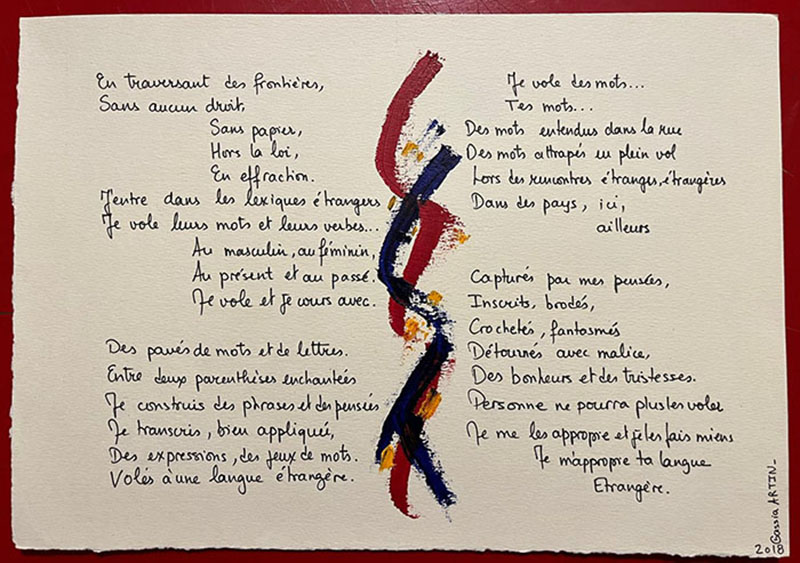 En traversant des frontières,
Sans aucun droit,
Sans papier,
Hors la loi,
En effraction.
J'entre dans les lexiques étrangers
Je vole leurs mots et leurs verbes...
Au masculin, au féminin,
Au présent et au passé.
Je vole et je cours avec.
Des pavés de mots et de lettres.
Entre deux parenthèses enchantées
Je construis des phrases et des pensées
Je transcris, bien appliquée,
Des expressions, des jeux de mots.
Volés à une langue étrangère.
Je vole des mots...
Tes mots...
Des mots entendus dans la rue
Des mots attrapés en plein vol
Lors des rencontres étranges, étrangères
Dans des pays, ici,
ailleurs
Capturés par mes pensées,
Inscrits, brodés,
Crochetés, fantasmés
Détournés avec malice,
Des bonheurs et des tristesses.
Personne ne pourra plus les voler
Je me les approprie et je les fais miens
Je m'approprie ta langue
Etrangère.
Gassia ARTIN_
2018